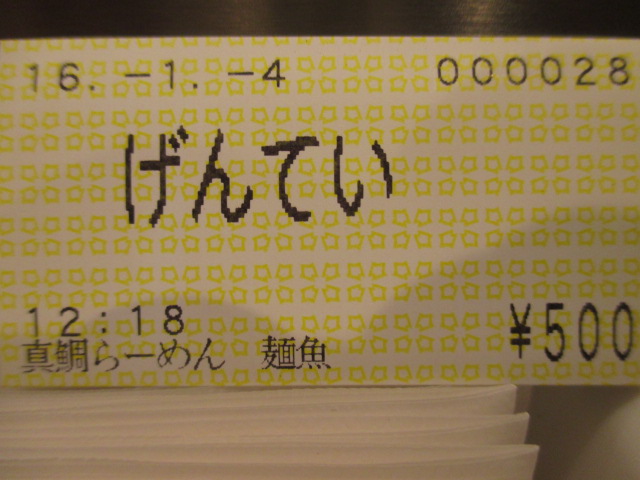 16.-1.-4 000028
げんてい
12:18
¥500
真鯛らーめん 麺魚